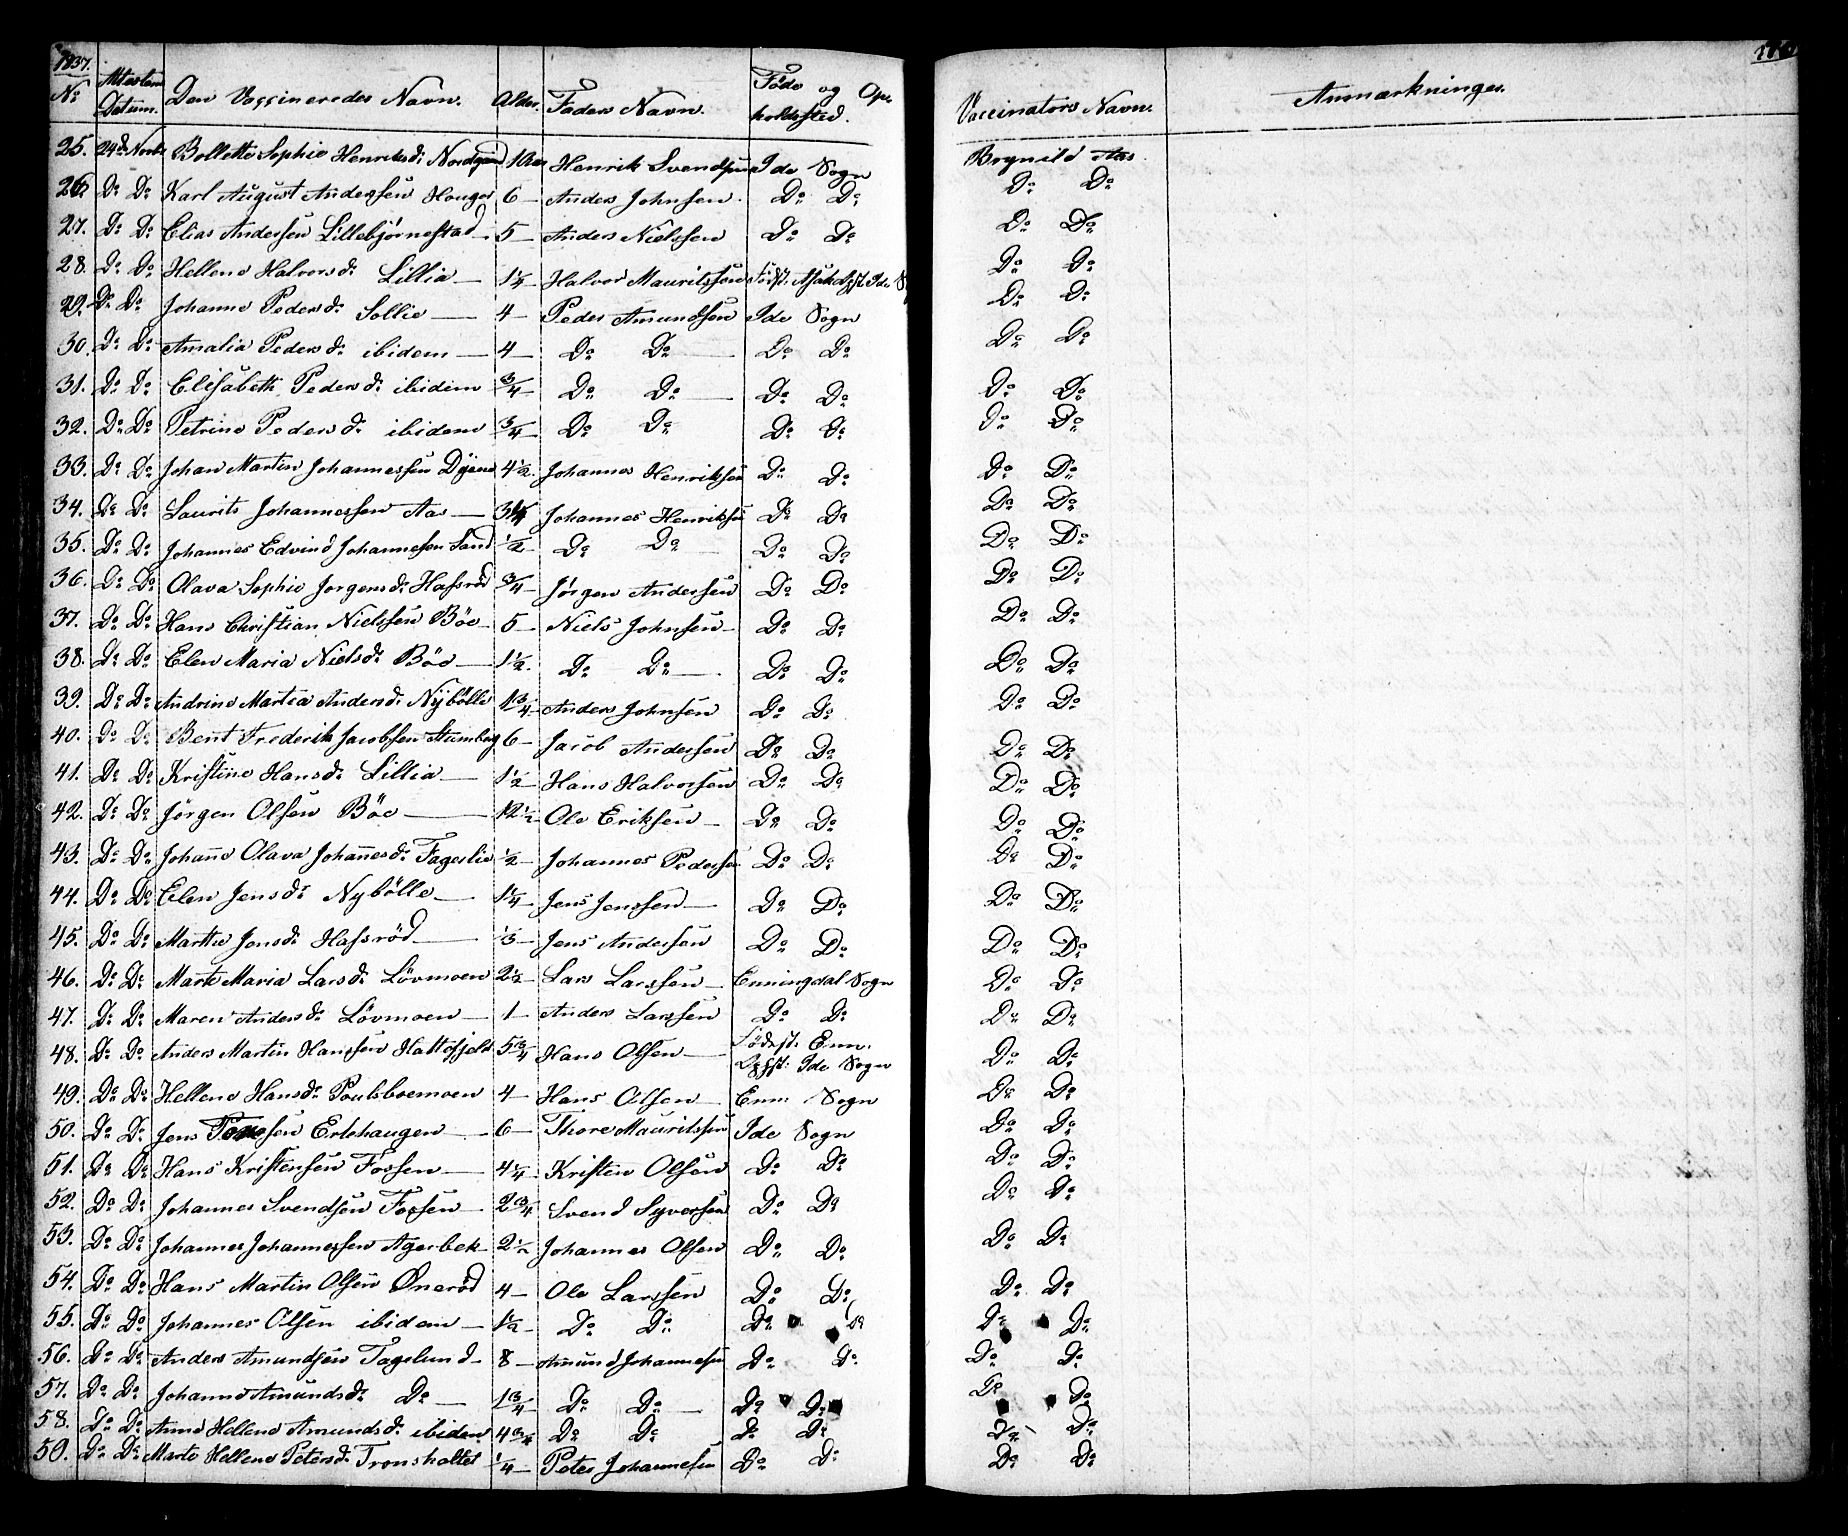 1837.
No Attestens Datum. Den Vaccineredes Navn. Alder. Faders Navn. Føde og Opholdssted. Vaccinators Navn. Anmærkninger.
25. 24de Novbr Bollette Sophie Henriksd: 1 Aar Henrik Svendsen Ide Sogn Brynild Aas
26. Do Do Karl August Anderssen Houges 6 — Anders Johnsen. Do Do Do Do
27. Do Do Elias Anderssen Lillebjørnestad 5 — Anders Nielssen Do Do Do Do
28. Do Do Hellene Halvorsd: Lillia — 1¼ — Halvor Mauritssen Fødst: Ide Do Do
29. Do Do Johanne Pedersd: Sollie — 4 — Peder Amundsen Ide Sogn Do Do
30. Do Do Amalia Pedersd: ibidem — 4 — Do Do — Do Do Do Do
31. Do Do Elisabeth Pedersd: ibidem ¾ — Do Do — Do Do Do Do
32. Do Do Petrine Pedersd: ibidem ¾ — Do Do Do Do Do Do
33. Do Do Johan Martin Johannessen 4½ Johannes Henriksen Do Do Do Do
34. Do Do Laurits Johannessen Aas — Johannes Henriksen Do Do Do Do
35. Do Do Johannes Edvind Johannesen Sand ½ — Do Do — Do Do Do Do
36. Do Do Olava Sophie Jørgensd: Hafsrød ¾ — Jørgen Andersen Do Do Do Do
37. Do Do Hans Christian Nielssen Böe 5 — Niels Johnsen — Do Do Do Do
38. Do Do Elen Maria Nielsd: Böe — 1½. Do Do — Do Do Do Do
39. Do Do Andrine Martea Andersd: Nÿbölle 1¾ — Anders Johnsen Do Do Do Do
40. Do Do Bent Frederik Jacobsen 6 — Jacob Andersen Do Do Do Do
41. Do Do Kristine Hansd: Lillia — 1½ — Hans Halvorsen Do Do Do Do
42. Do Do Jörgen Olsen Böe — 12½ — Ole Eriksen — Do Do Do Do
43. Do Do Johane Olava Johanesd: Fageslie ½ — Johannes Pedersen Do Do Do Do
44. Do Do Elen Jensd: Nybölle — 1¼ — Jens Jenssen — Do Do Do Do
45. Do Do Marthe Jensd: Hafsröd — ⅓ — Jens Andersen Do Do Do Do
46. Do Do Marte Maria Larsd: Lövmoen 2½ — Lars Larssen — Enningdal Sogn Do Do
47. Do Do Maren Andersd: Lövmoen — 1 — Anders Larssen Do Do Do Do
48. Do Do Anders Martin Hanssen Hattefjeld 5¾ Hans Olsen — Fødest: Enn. Do Do
Opst: Ide Sogn
49. Do Do Hellene Hansd: Poulsboemoen 4 — Hans Olsen — Enn: Sogn Do Do
50. Do Do Jens Erlehaugen — 6 — Thore Mauritssen Ide Sogn Do Do
51. Do Do Hans Kristensen Fossen — 4¼ — Kristen Olsen Do Do Do Do
52. Do Do Johannes Svendsen Fossen — 2¾ Svend Syversen Do Do Do Do
53. Do Do Johannes Johannessen Agerbek 2½ Johannes Olsen Do Do Do Do
54. Do Do Hans Martin Olsen Ønerød 4 — Ole Larssen Do Do Do Do
55. Do Do Johannes Olsen ibidem — 1½ — Do Do Do Do Do Do
56. Do Do Anders Amundsen Fagelund — 8 — Amund Johannesen Do Do Do Do
57. Do Do Johanne Amundsd: Do — 1¾ — Do Do — Do Do Do Do
58. Do Do Anne Hellene Amundsd: ibidem 4¾ Do Do Do Do Do Do
59. Do Do Marte Hellene Petersd: Tronsholtet ¼ — Peter Johannesen Do Do Do Do